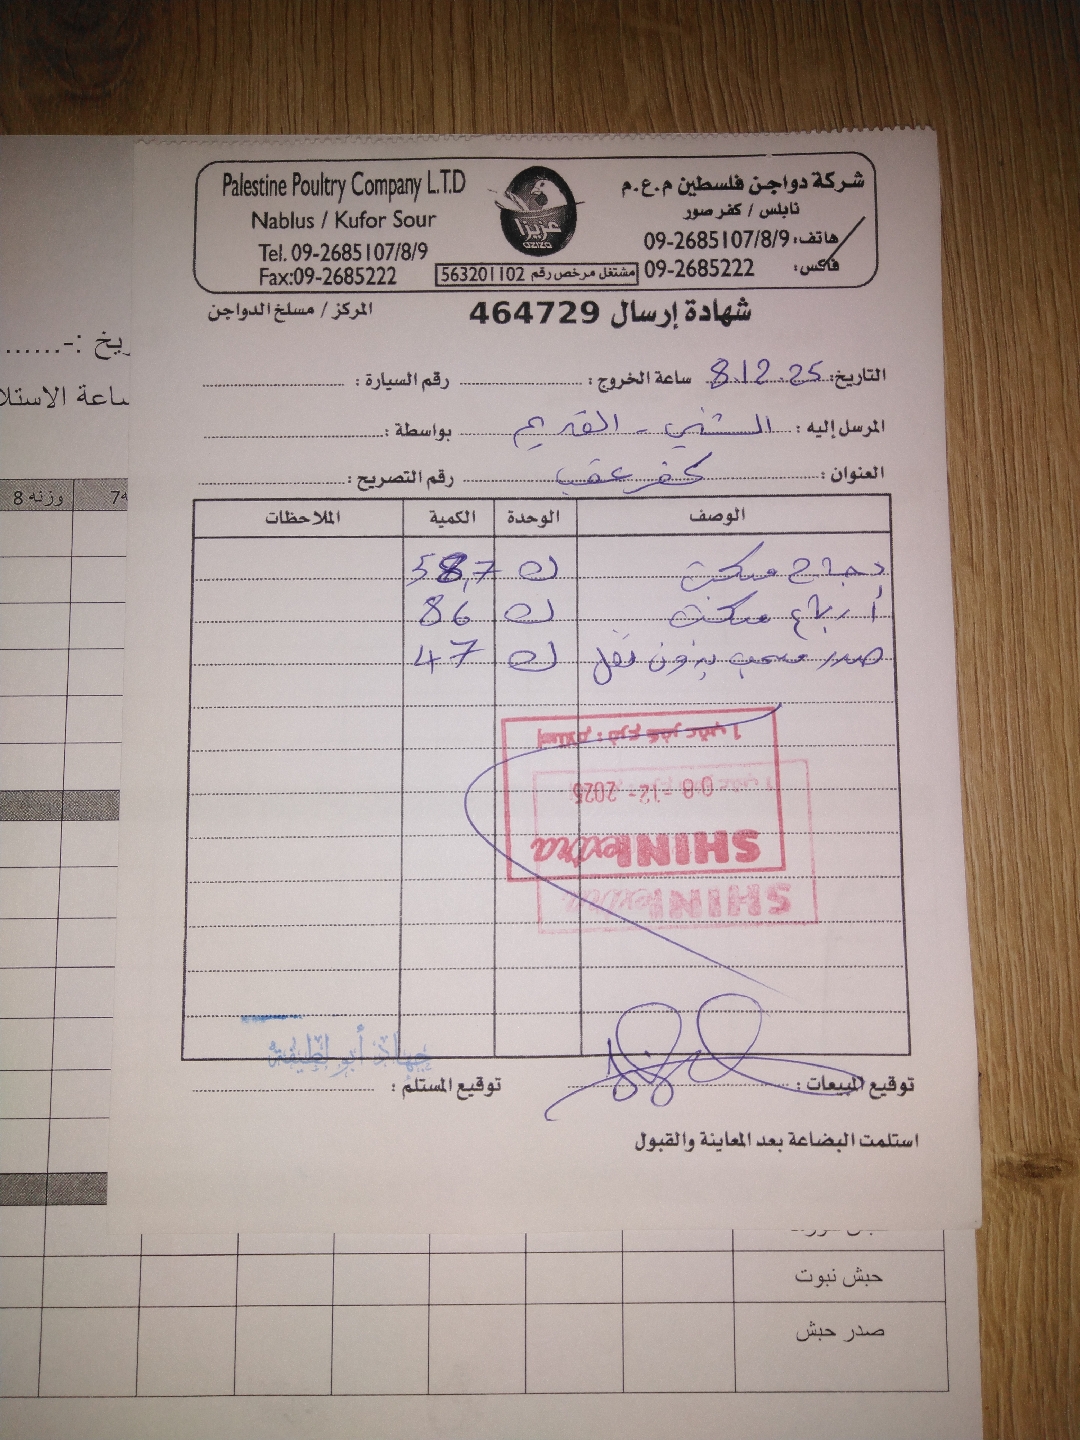 Palestine Poultry Company L.T.D
Nablus / Kufor Sour
Tel. 09-2685107/8/9
Fax:09-2685222
عزيزا
aziza
شركة دواجن فلسطين م.ع.م
نابلس / كفر صور
هاتف: 09-2685107/8/9
فاكس: 09-2685222
مشتغل مرخص رقم 563201102
شهادة إرسال 464729
المركز / مسلخ الدواجن
التاريخ: 8.12.25 ساعة الخروج: رقم السيارة:
المرسل إليه: الشني - القديم بواسطة:
العنوان: كفر عقب رقم التصريح:
الوصف الوحدة الكمية الملاحظات
دجاج ك 58,7
أرباع ك 86
صدر مسحب بدون ك 47
استلام: فرع كفر عقب 1
08-12-2025
SHINI extra
SHINI extra
جهاد أبو لطيفة
توقيع المبيعات: توقيع المستلم:
استلمت البضاعة بعد المعاينة والقبول
يخ :-......
ساعة الاستلا
وزنه 8
حبش نبوت
صدر حبش